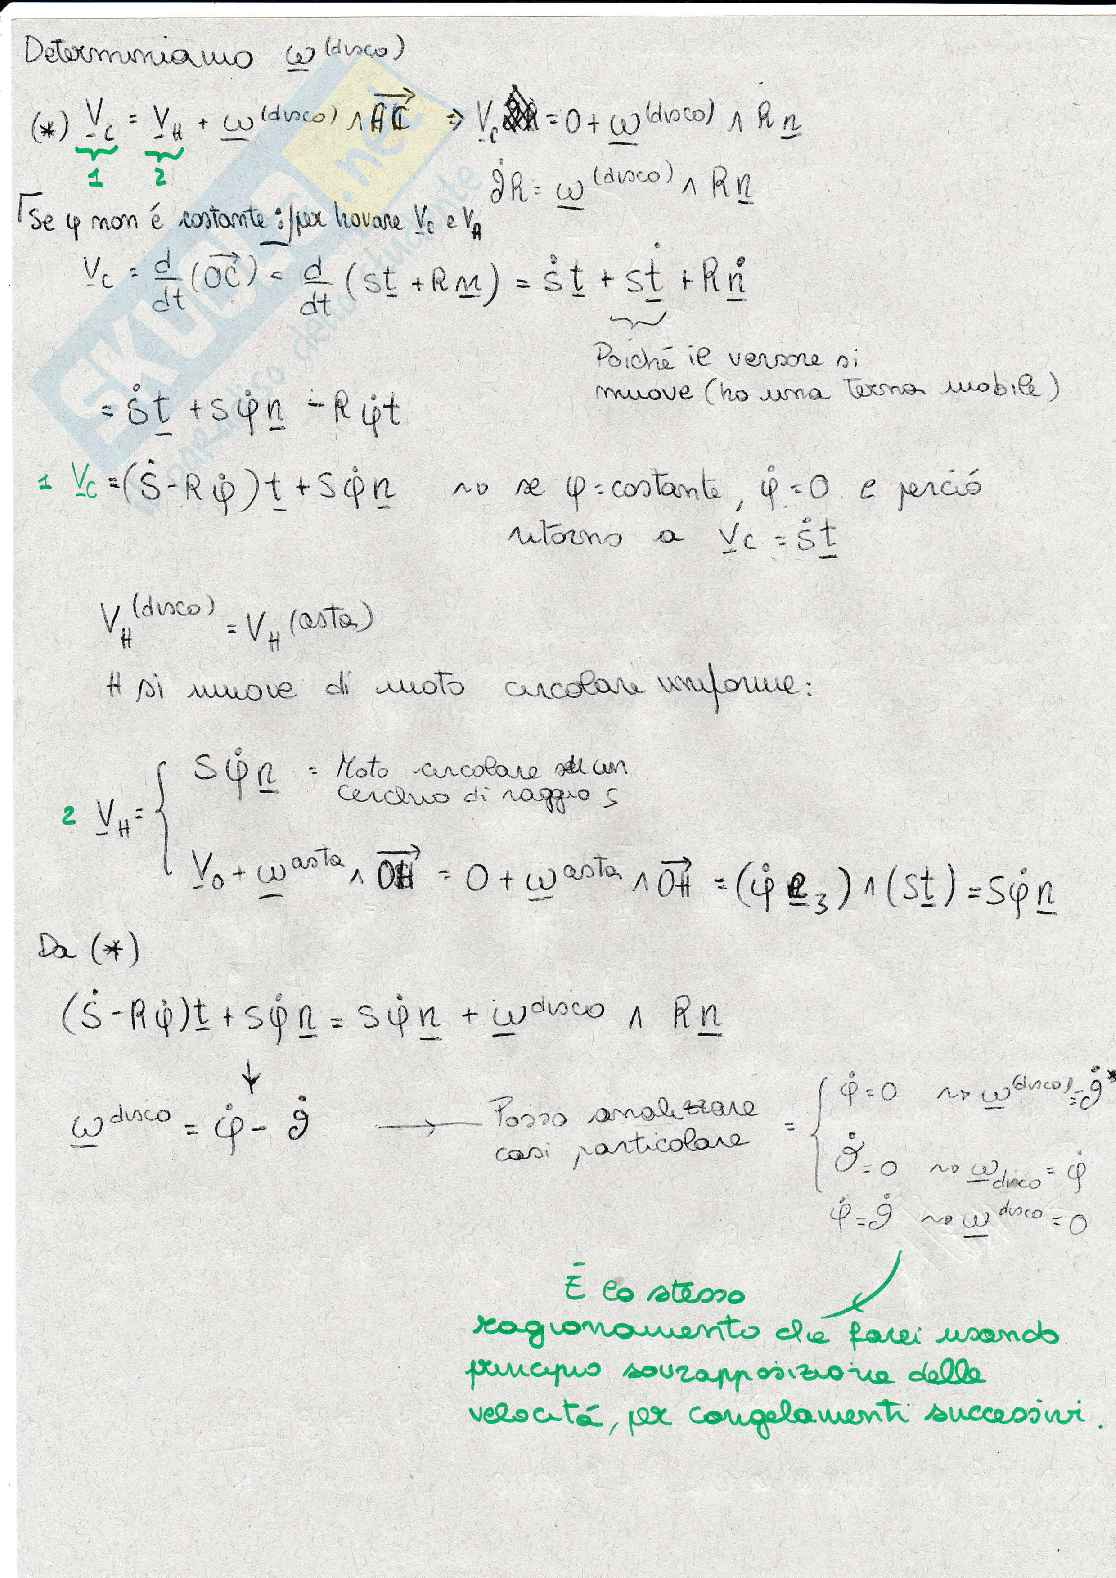 Determiniamo ω^(disco)
(*) V_C = V_H + ω^(disco) ∧ HC ⇒ V_C = 0 + ω^(disco) ∧ R n
1 2
ϑ̇R = ω^(disco) ∧ R n
Se φ non é costante : per trovare V_C e V_H
V_C = d/dt (OC) = d/dt (st + Rn) = ṡ t + s ṫ + R ṅ
Poiché il versore si
muove (ho una terna mobile)
= ṡ t + sφ̇ n - R φ̇ t
1 V_C = (ṡ - R φ̇) t + sφ̇ n ⇝ se φ = costante, φ̇ = 0 e perció
ritorno a V_C = ṡ t
V_H^(disco) = V_H^(asta)
H si muove di moto circolare uniforme:
sφ̇ n = Moto circolare su un
cerchio di raggio s
2 V_H = {
V_0 + ω^asta ∧ OH = 0 + ω^asta ∧ OH = (φ̇ e_3) ∧ (st) = sφ̇ n
Da (*)
(ṡ - Rφ̇) t + sφ̇ n = sφ̇ n + ω^disco ∧ R n
↓
ω^disco = φ̇ - ϑ̇ → Posso analizzare
casi particolare
= { φ̇ = 0 ⇝ ω^(disco) = ϑ̇*
ϑ̇ = 0 ⇝ ω_disco = φ̇
φ̇ = ϑ̇ ⇝ ω^disco = 0
É lo stesso
ragionamento che farei usando
principio sovrapposizione delle
velocitá, per congelamenti successivi.
SKUOLA.net